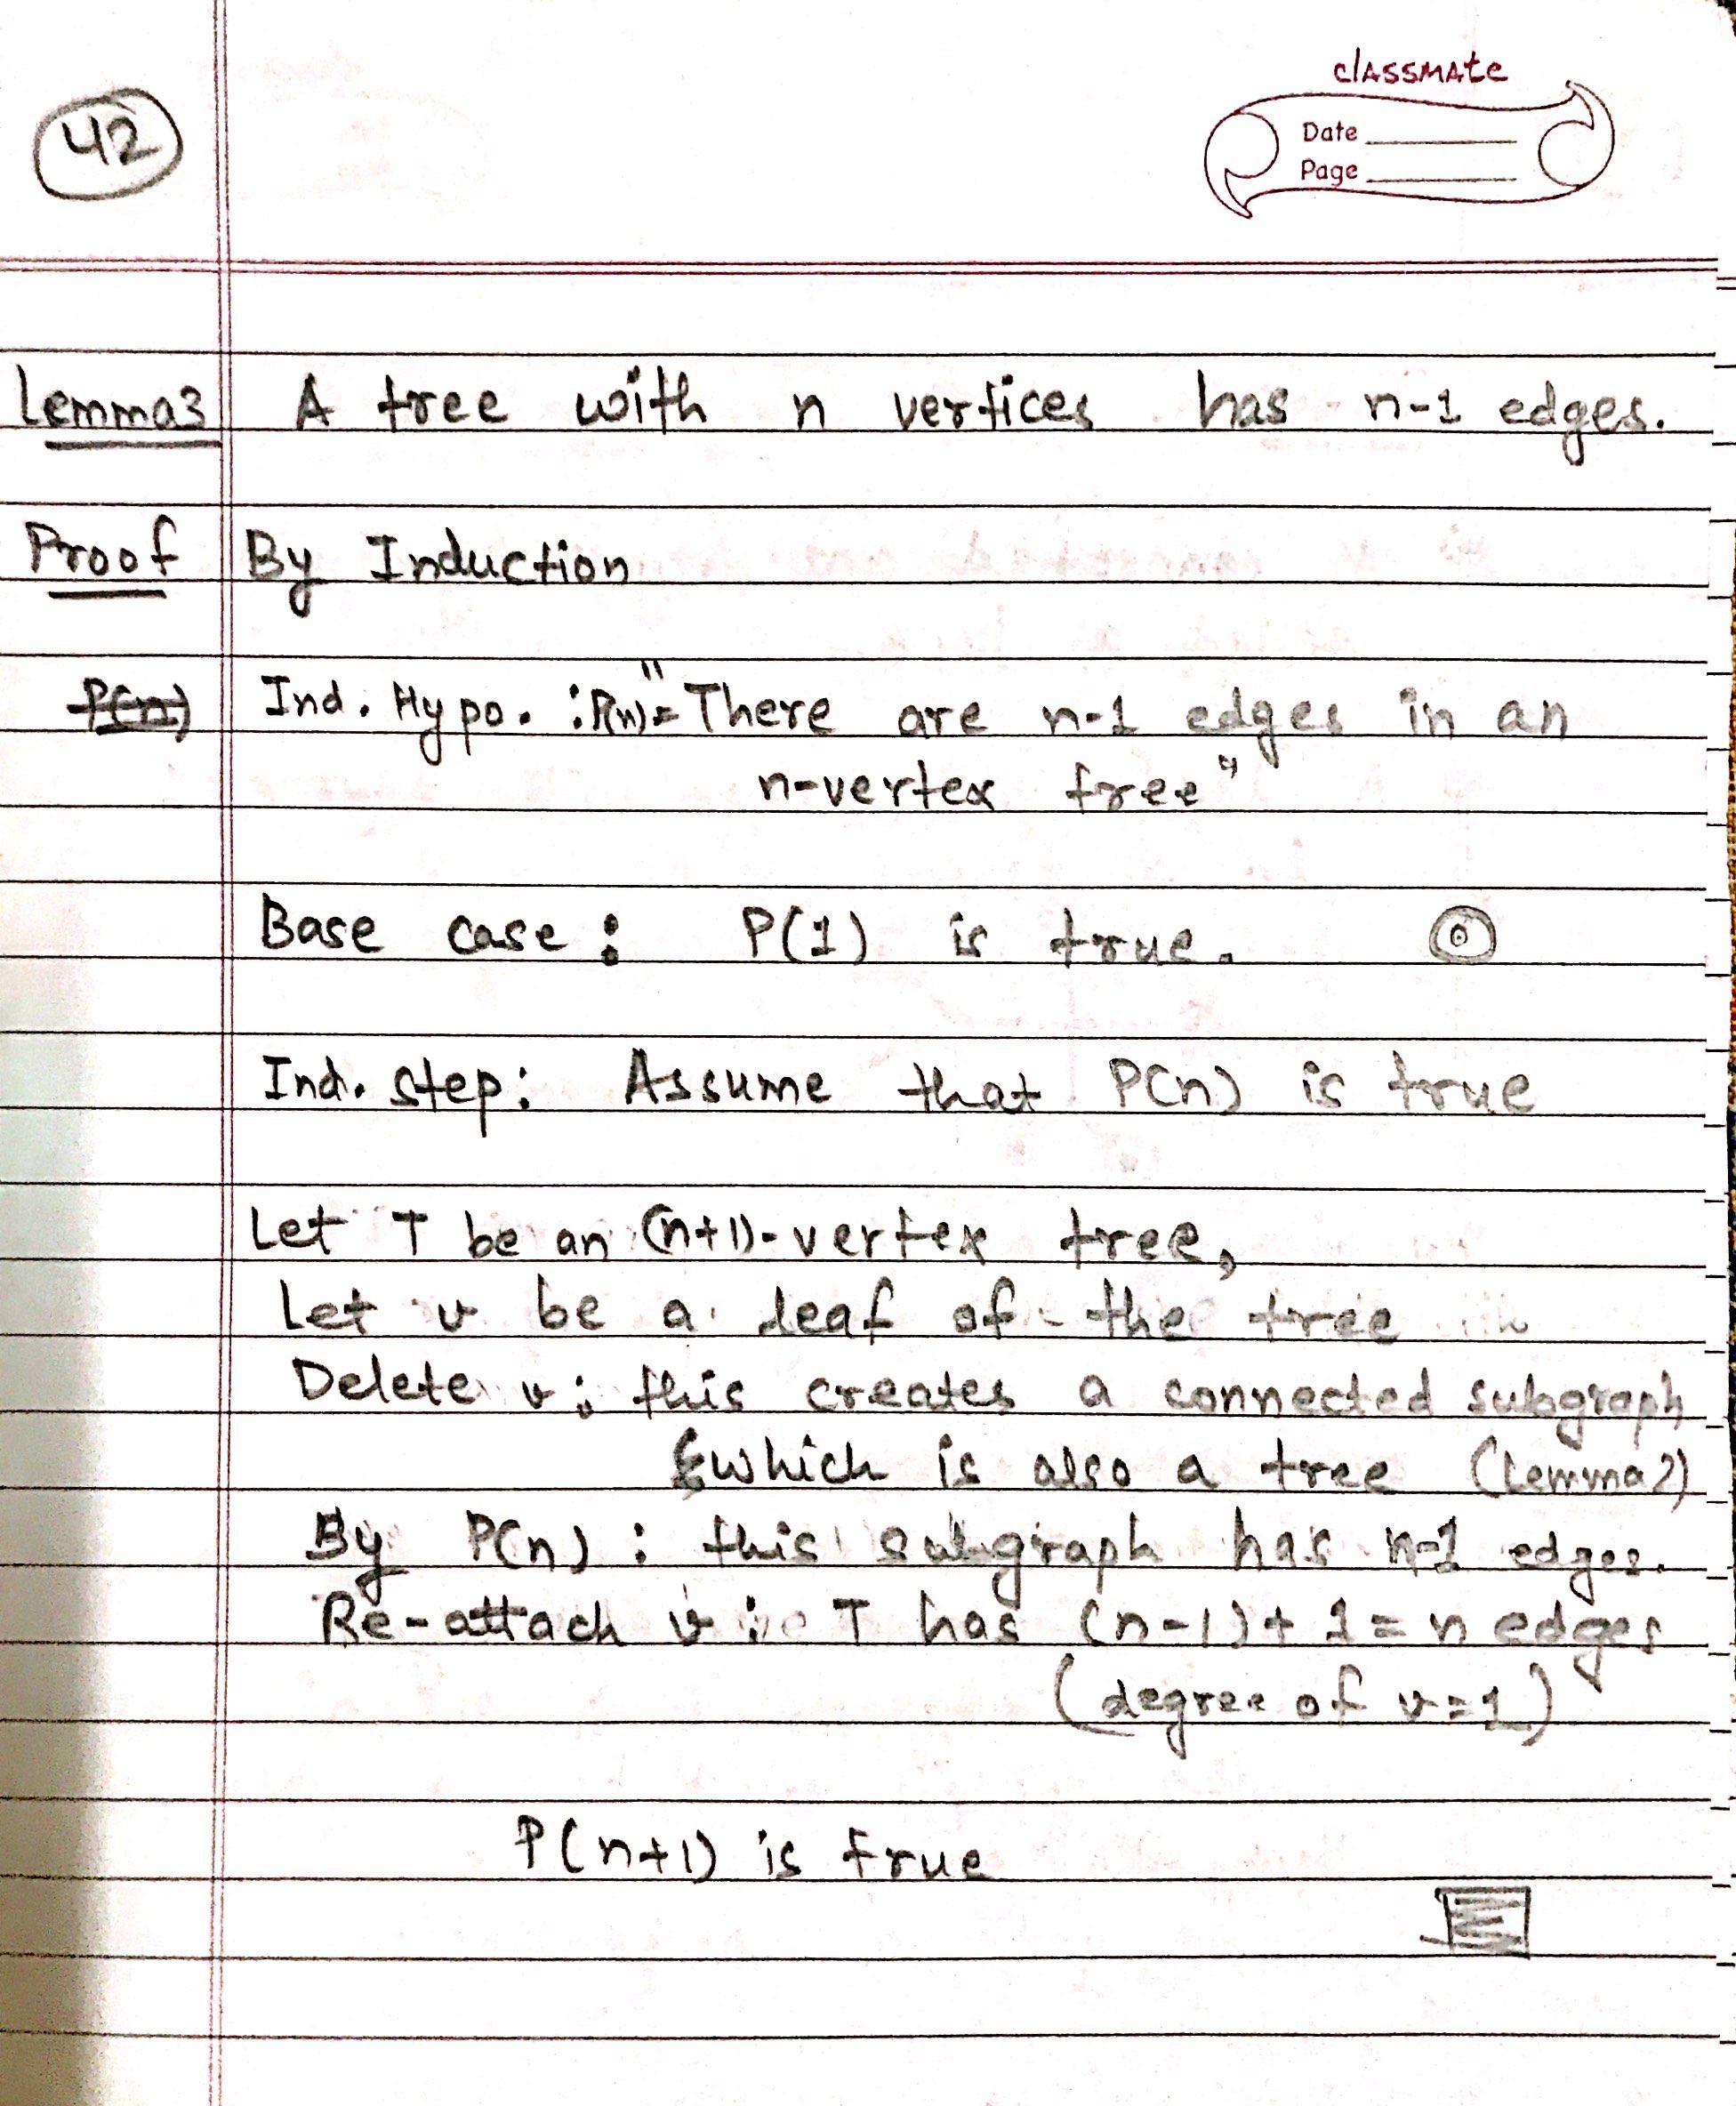 42
classmate
Date
Page
Lemma3 A tree with n vertices has n-1 edges.
Proof By Induction
P(n) Ind. Hypo. : P(n)= "There are n-1 edges in an
n-vertex tree"
Base case : P(1) is true.
Ind. step: Assume that P(n) is true
Let T be an (n+1)-vertex tree,
Let v be a leaf of the tree
Delete v : this creates a connected subgraph
which is also a tree (Lemma2)
By P(n) : this subgraph has n-1 edges.
Re-attach v : T has (n-1)+1=n edges
(degree of v=1)
P(n+1) is true